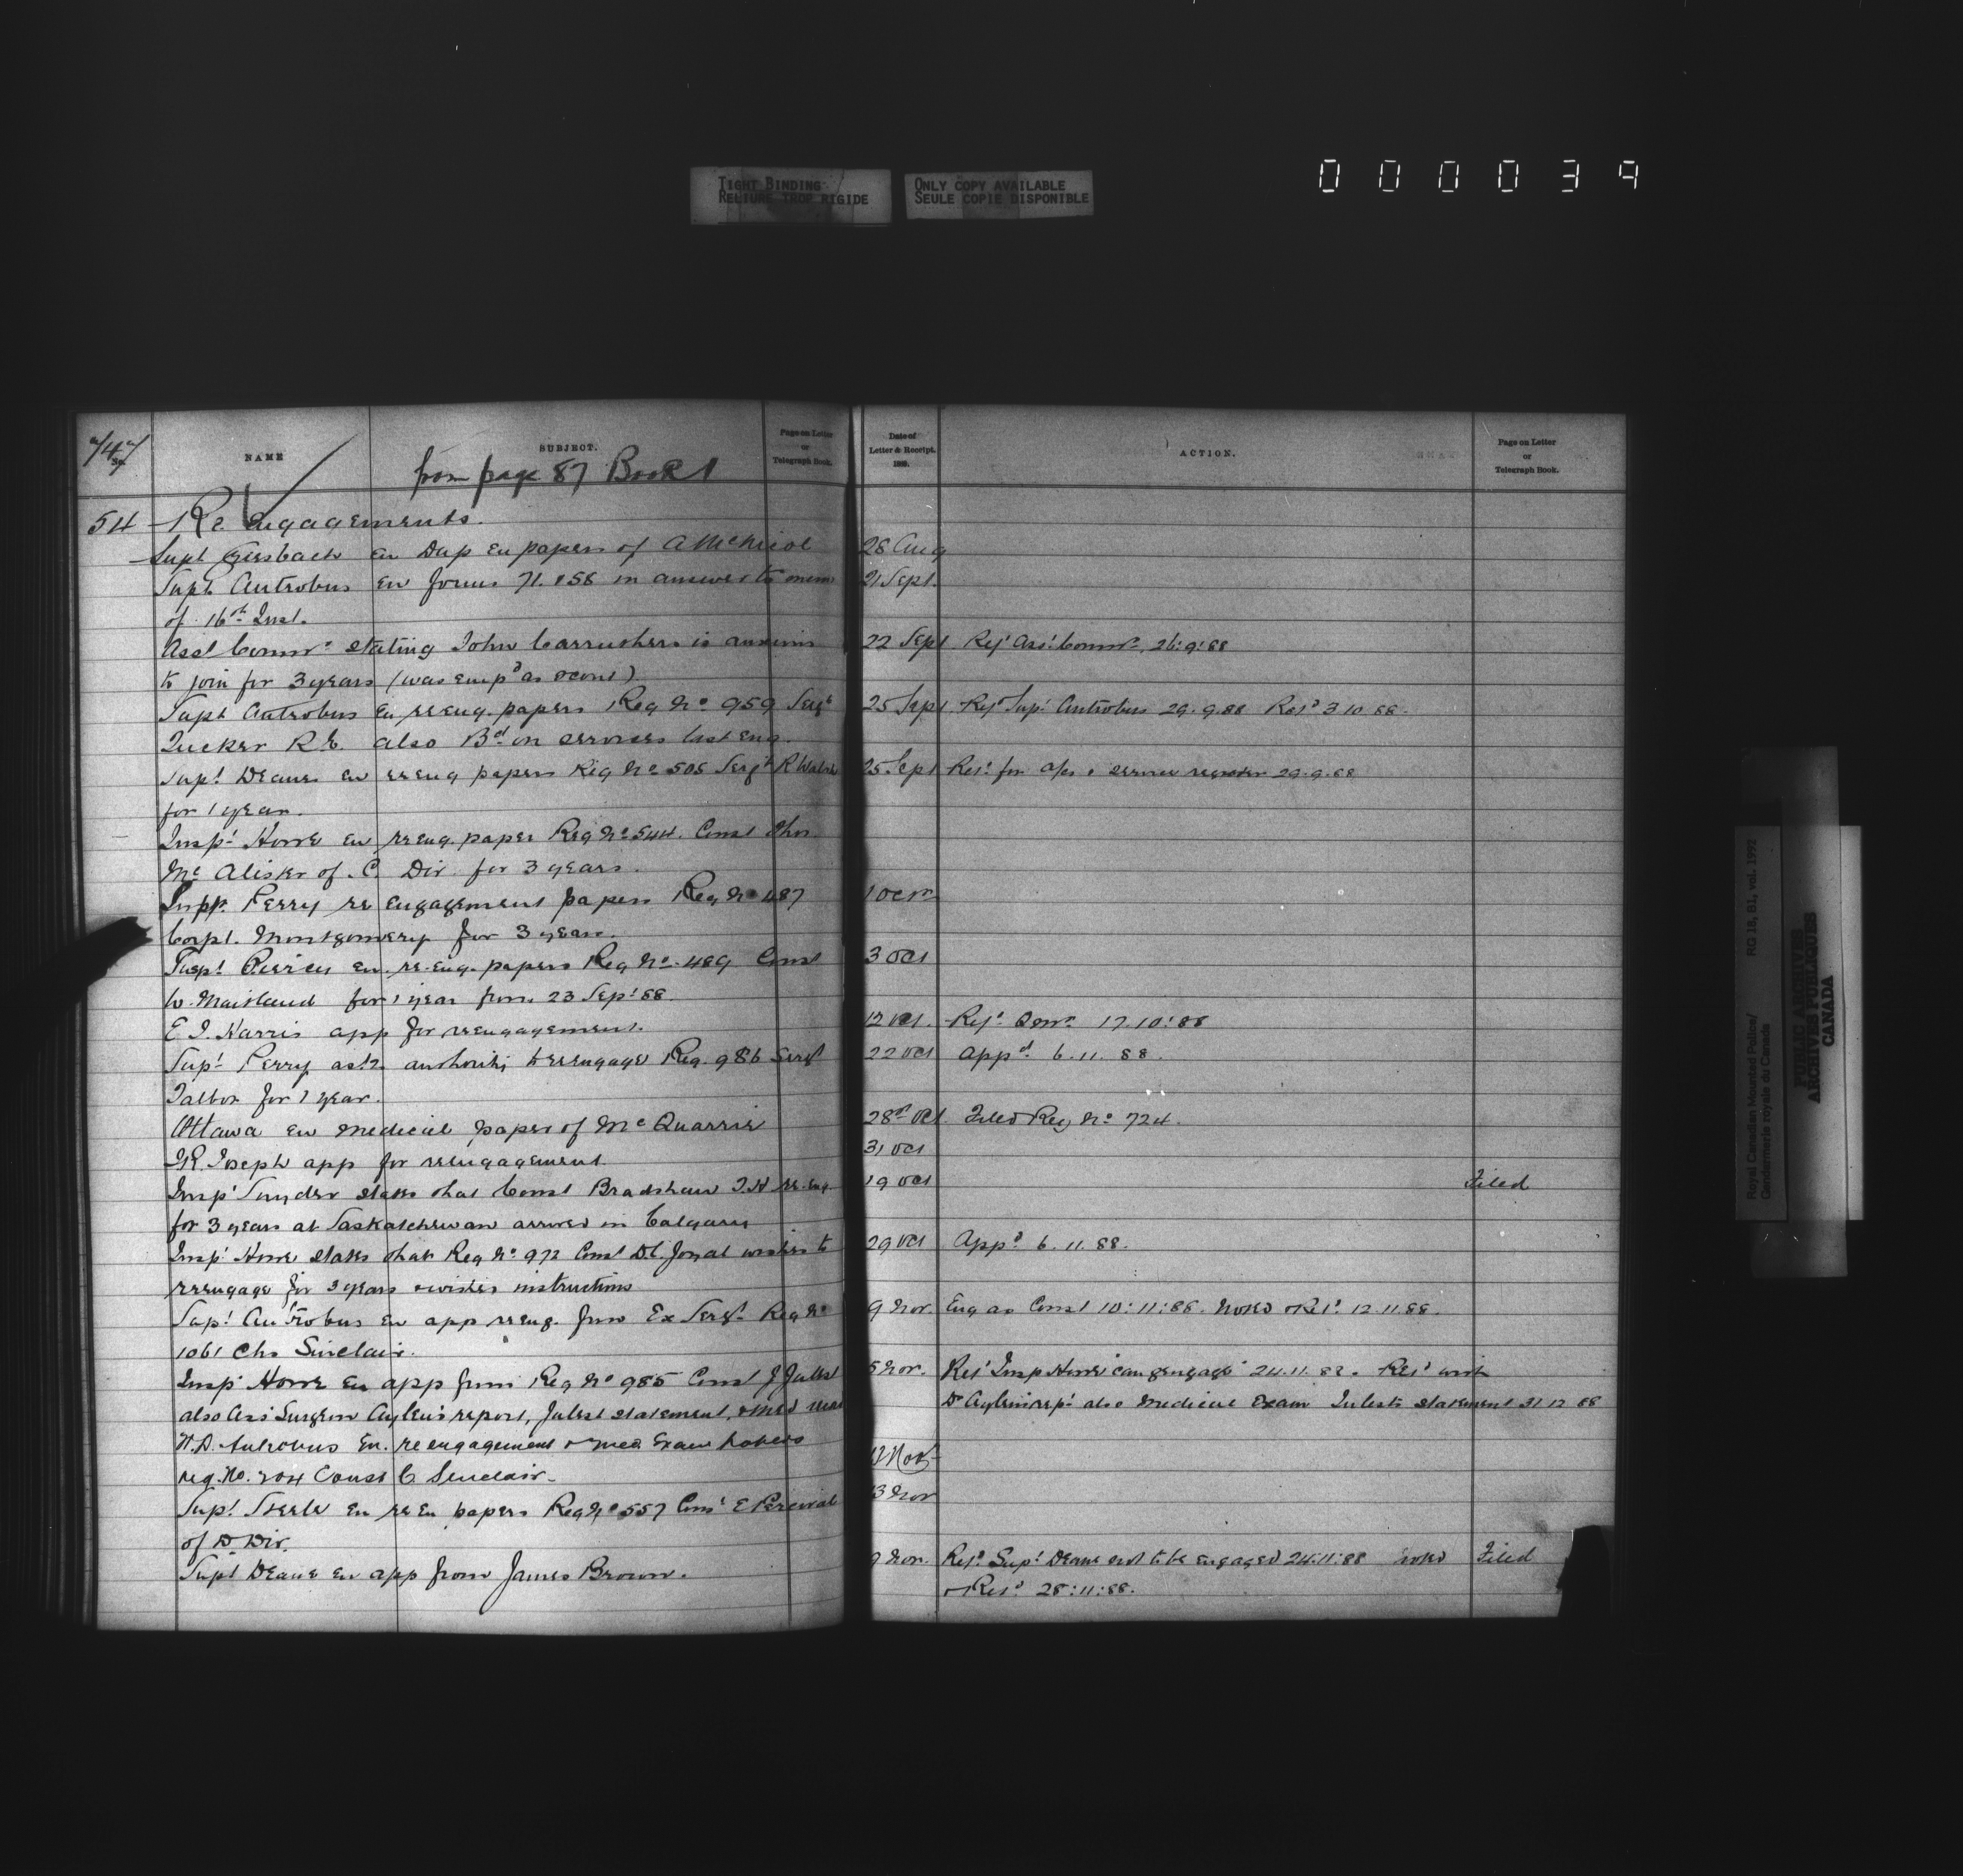 000039
TIGHT BINDING
RELIURE TROP RIGIDE
ONLY COPY AVAILABLE
SEULE COPIE DISPONIBLE
NAME
SUBJECT.
Page on Letter
or
Telegraph Book.
Date of
Letter & Receipt.
188 .
ACTION.
Page on Letter
or
Telegraph Book.
from page 87 Book 1
54 Re engagements.
Supt Griesbach en Dup en papers of A McNicol 28 Aug
Supt Antrobus en forms 71. & 58 in answer to memo 21 Sept.
of 16th Inst.
Asst Commr stating John Carruthers is anxious 22 Sept Repd Asst Commr. 26:9:88
to join for 3 years (was empd as scout)
Supt Antrobus en re eng. papers Reg No 959 Sergt 25 Sept Repd Supt Antrobus 29.9.88 Retd 3.10.88.
Tucker R.E. also Bd on services last eng.
Supt Deane en re eng papers Reg No 505 Sergt R Walsh 25 Sept Retd for a/cs & service register 29.9.88
for 1 year.
Inspt Howe en re eng. paper Reg No 544. Const Thos
McAlister of C. Div. for 3 years.
Supt. Perry re engagement papers Reg No 487 1 Oct
Corpl. Montgomery for 3 years.
Inspt Piercy en re-eng. papers Reg No. 489 Const 3 Oct
W. Maitland for 1 year from 23 Sept 88.
E.J. Harris app for reengagement. 12 Oct. Repd Comr. 17.10:88
Supt Perry asks authority to reengage Reg. 986 Sergt 22 Oct appd. 6.11.88.
Talbot for 1 year.
Ottawa en medical paper of McQuarrie 28th Oct. Filed Reg No 724.
R. Joseph app for reengagement. 31 Oct
Inspt Snyder states that Const Bradshaw J.H re-eng. 19 Oct Filed
for 3 years at Saskatchewan arrived in Calgary
Inspt Howe states that Reg No. 972 Const D.C. Joyal wishes to 29 Oct Appd. 6.11.88.
reengage for 3 years & wishes instructions
Supt Antrobus en app re eng. from Ex Sergt Reg No 9 Nov. Eng as Const 10:11:88. Noted & Retd 12.11.88.
1061 Chs Sinclair.
Inspt Howe en app from Reg No 985 Const J Julest 5 Nov. Repd Inspt Howe can reengage 24.11.88. Retd with
also Asst Surgeon Aylen's report, Julest statement, & Med exam Dr Aylen's rept also Medical Exam Julest's statement 31 12 88
W.D. Antrobus En. re engagement & med Exam papers 12 Nov
reg. No. 204 Const C Sinclair.
Supt Steele en re En papers Reg No 557 Const E Percival 13 Nov
of D. Div.
Supt Deane en app from James Brown. 9 Nov. Repd Supt Deane not to be engaged 24:11:88 noted Filed
& Retd 28:11:88.
Royal Canadian Mounted Police/
Gendarmerie royale du Canada
RG 18, B1, vol. 1992
PUBLIC ARCHIVES
ARCHIVES PUBLIQUES
CANADA